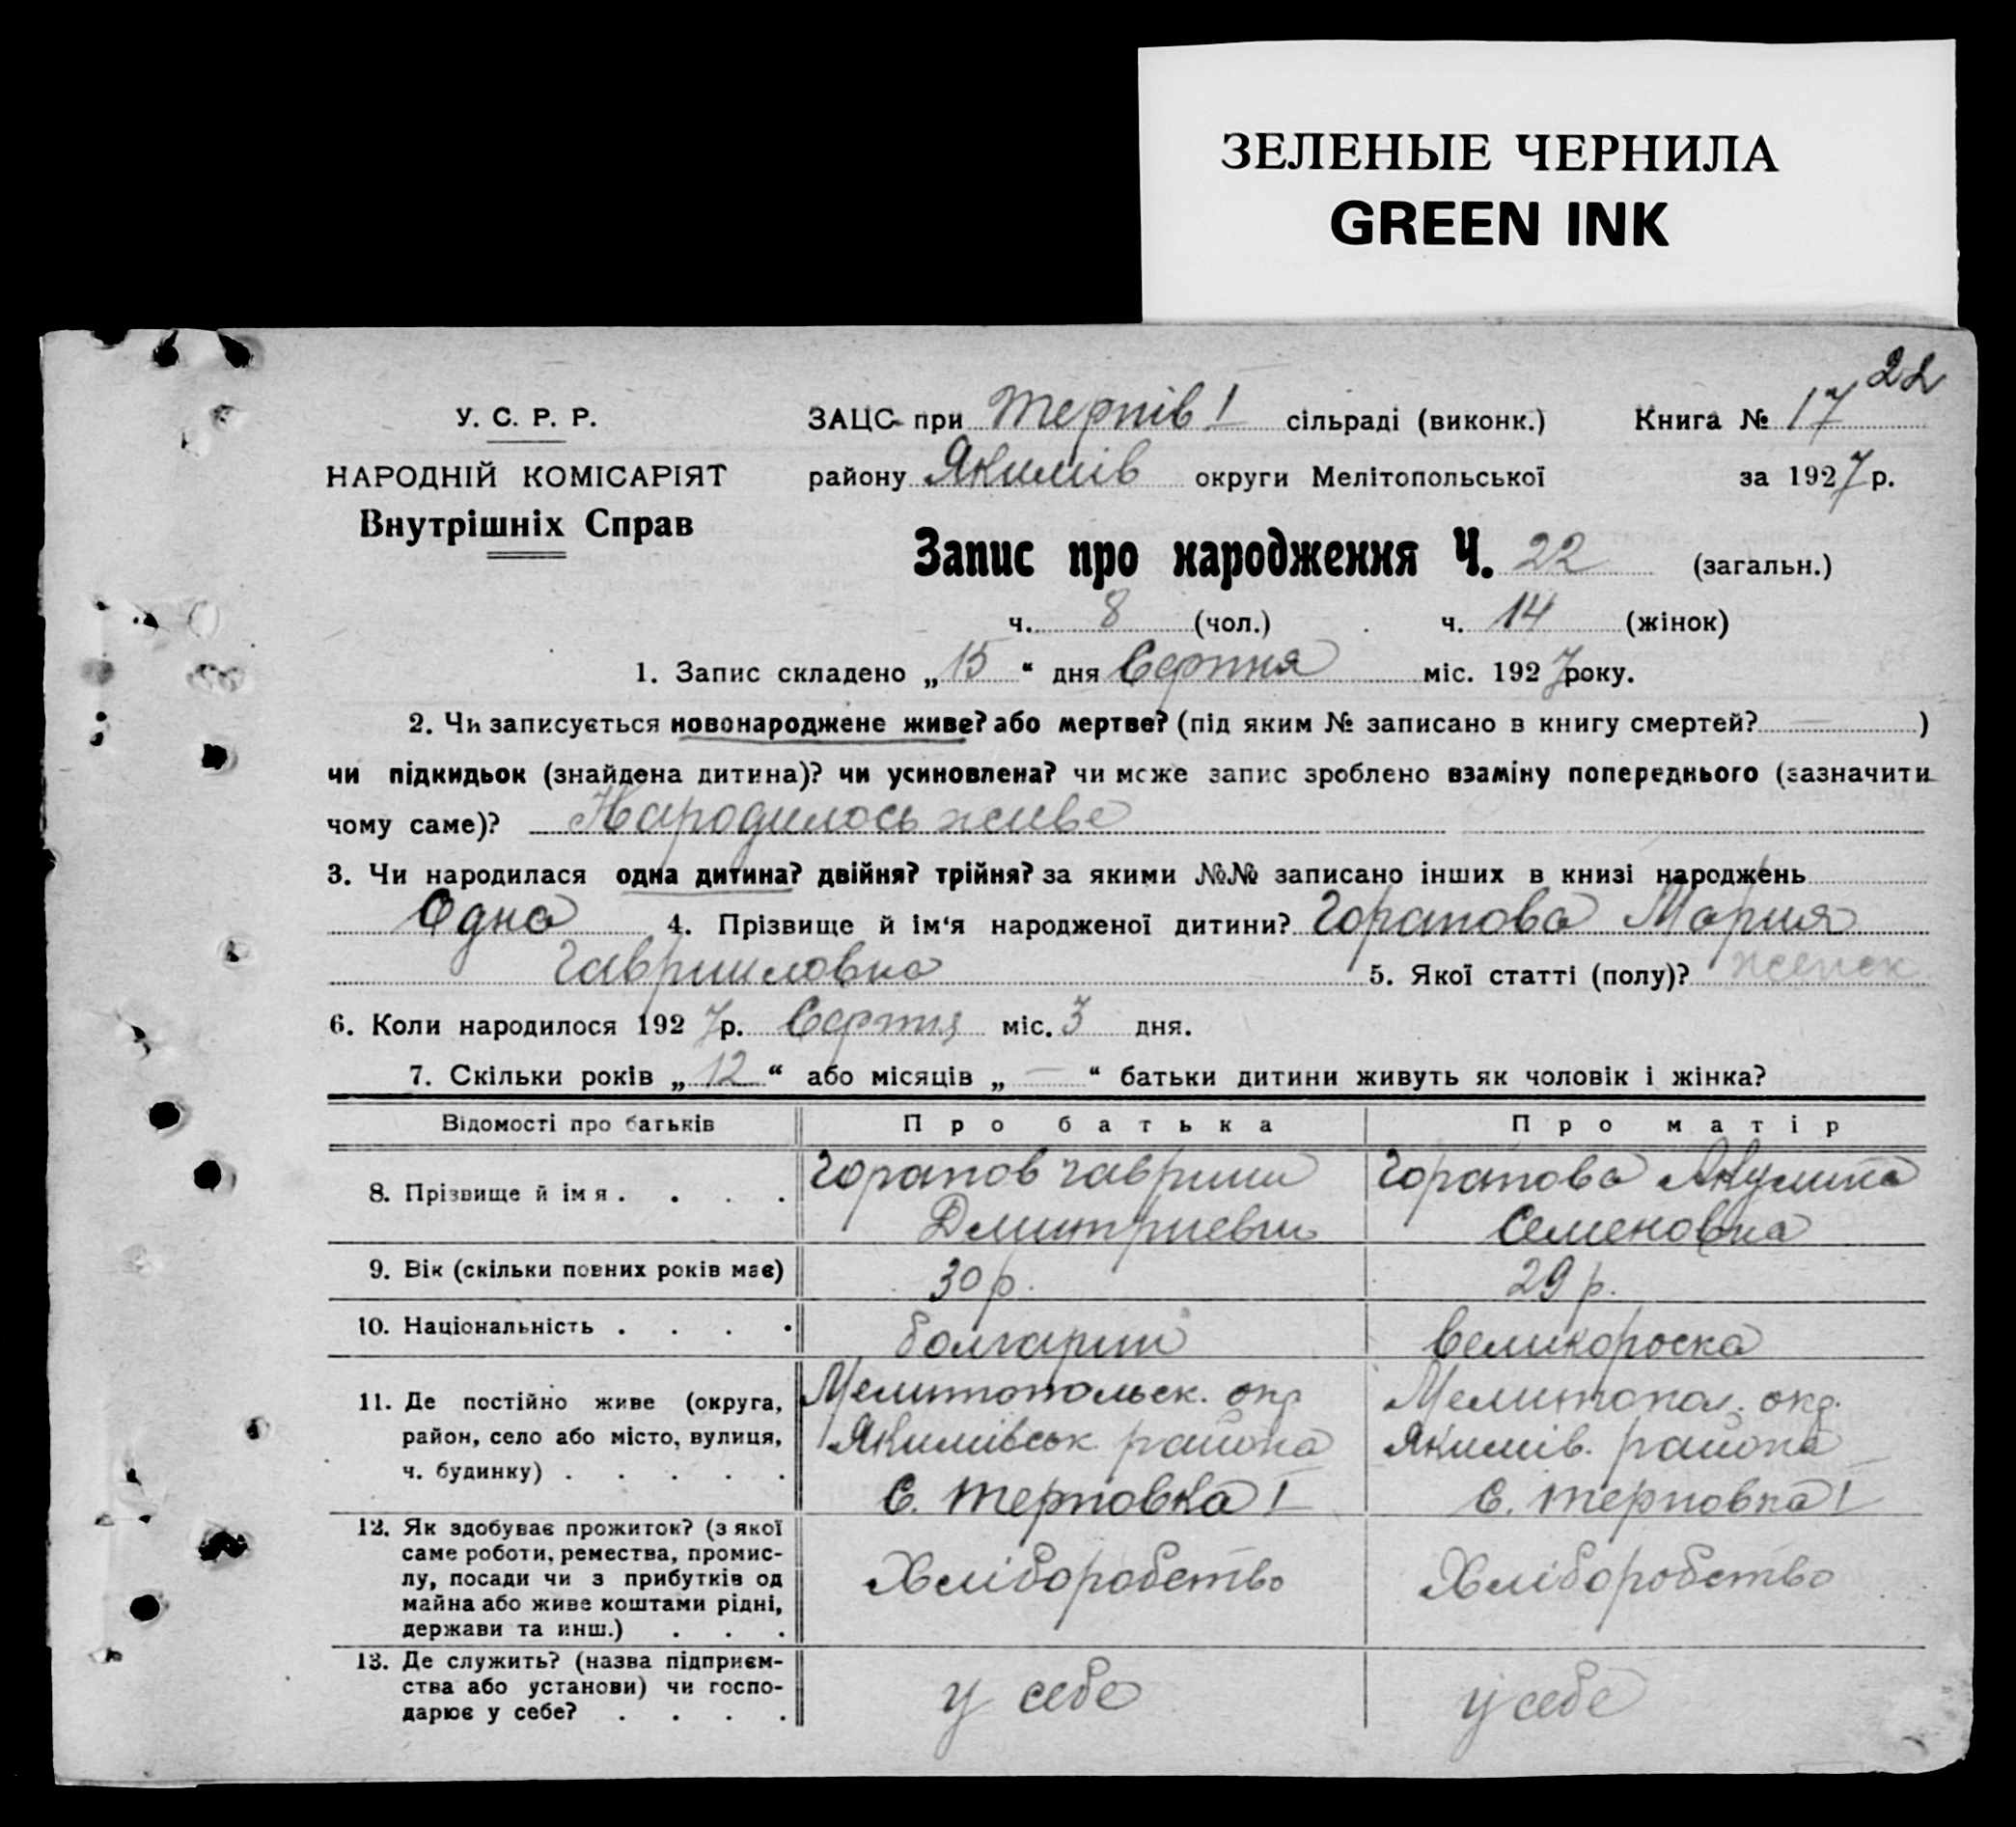 ЗЕЛЕНЫЕ ЧЕРНИЛА
GREEN INK
22
У. С. Р. Р.
НАРОДНІЙ КОМІСАРІЯТ
Внутрішніх Справ
ЗАЦС при Терпів I сільраді (виконк.) Книга № 17
району Якимів округи Мелітопольської за 1927 р.
Запис про народження Ч. 22 (загальн.)
ч. 8 (чол.) ч. 14 (жінок)
1. Запис складено „ 15 “ дня Серпня міс. 1927 року.
2. Чи записується новонароджене живе? або мертве? (під яким № записано в книгу смертей? — )
чи підкидьок (знайдена дитина)? чи усиновлена? чи може запис зроблено взаміну попереднього (зазначити
чому саме)? Народилось живе
3. Чи народилася одна дитина? двійня? трійня? за якими №№ записано інших в книзі народжень
Одна 4. Прізвище й ім‘я народженої дитини? Горапова Мария
Гавриловна 5. Якої статті (полу)? женск
6. Коли народилося 1927 р. Серпня міс. 3 дня.
7. Скільки років „ 12 “ або місяців „ — “ батьки дитини живуть як чоловік і жінка?
Відомості про батьків Про батька Про матір
8. Прізвище й ім я . . . . Горапов Гавриил Горапова Акулина
Дмитриевич Семеновна
9. Вік (скільки повних років має) 30 р. 29 р.
10. Національність . . . . болгарин великороска
11. Де постійно живе (округа, Мелитопольск. окр. Мелитопол. окр.
район, село або місто, вулиця, Якимівськ района Якимів. района
ч. будинку) . . . . . С. Терповка I С. Терповка I
12. Як здобуває прожиток? (з якої
саме роботи, ремества, промис-
лу, посади чи з прибутків од Хліборобство Хліборобство
майна або живе коштами рідні,
держави та инш.) . . .
13. Де служить? (назва підприєм-
ства або установи) чи госпо- у себе у себе
дарює у себе? . . . .